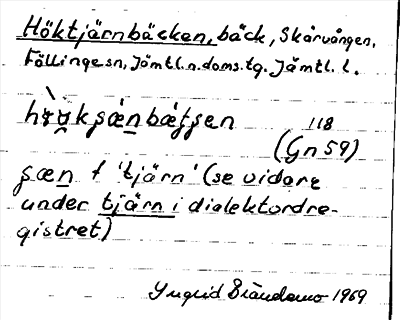 Höktjärnbäcken, bäck, Skärvången,
Föllinge sn, Jämtl. n. doms. tg. Jämtl. l.
118
(Gn 59)
f 'tjärn' (se vidare
under tjärn i dialektordre-
gistret)
Yngrid 1969